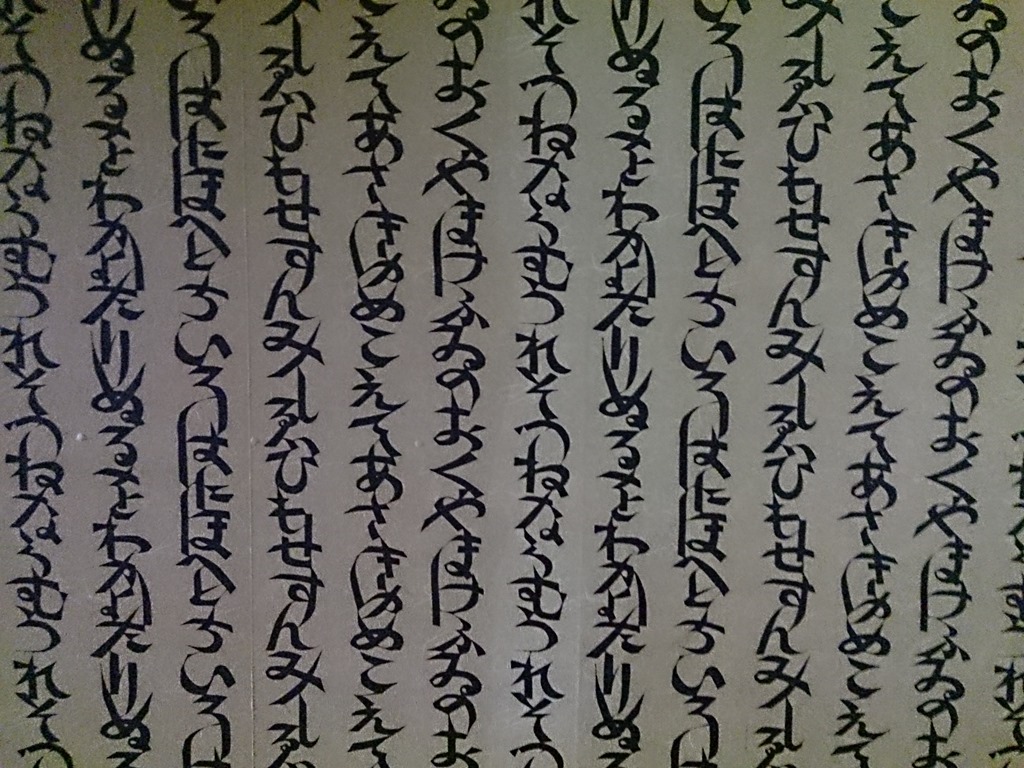 ゐのおくやまけふゐのおくやまけふゐのお
こえてあさきゆめこえてあさきゆめこえて
みしゑひもせすんみしゑひもせすんみしゑ
いろはにほへとちいろはにほへとちいろは
りぬるをわかよたりぬるをわかよたりぬる
れそつねならむうれそつねならむうれそつ
ゐのおくやまけふゐのおくやまけふゐのお
こえてあさきゆめこえてあさきゆめこえて
みしゑひもせすんみしゑひもせすんみしゑ
いろはにほへとちいろはにほへとちいろは
りぬるをわかよたりぬるをわかよたりぬる
れそつねならむうれそつねならむうれそつ